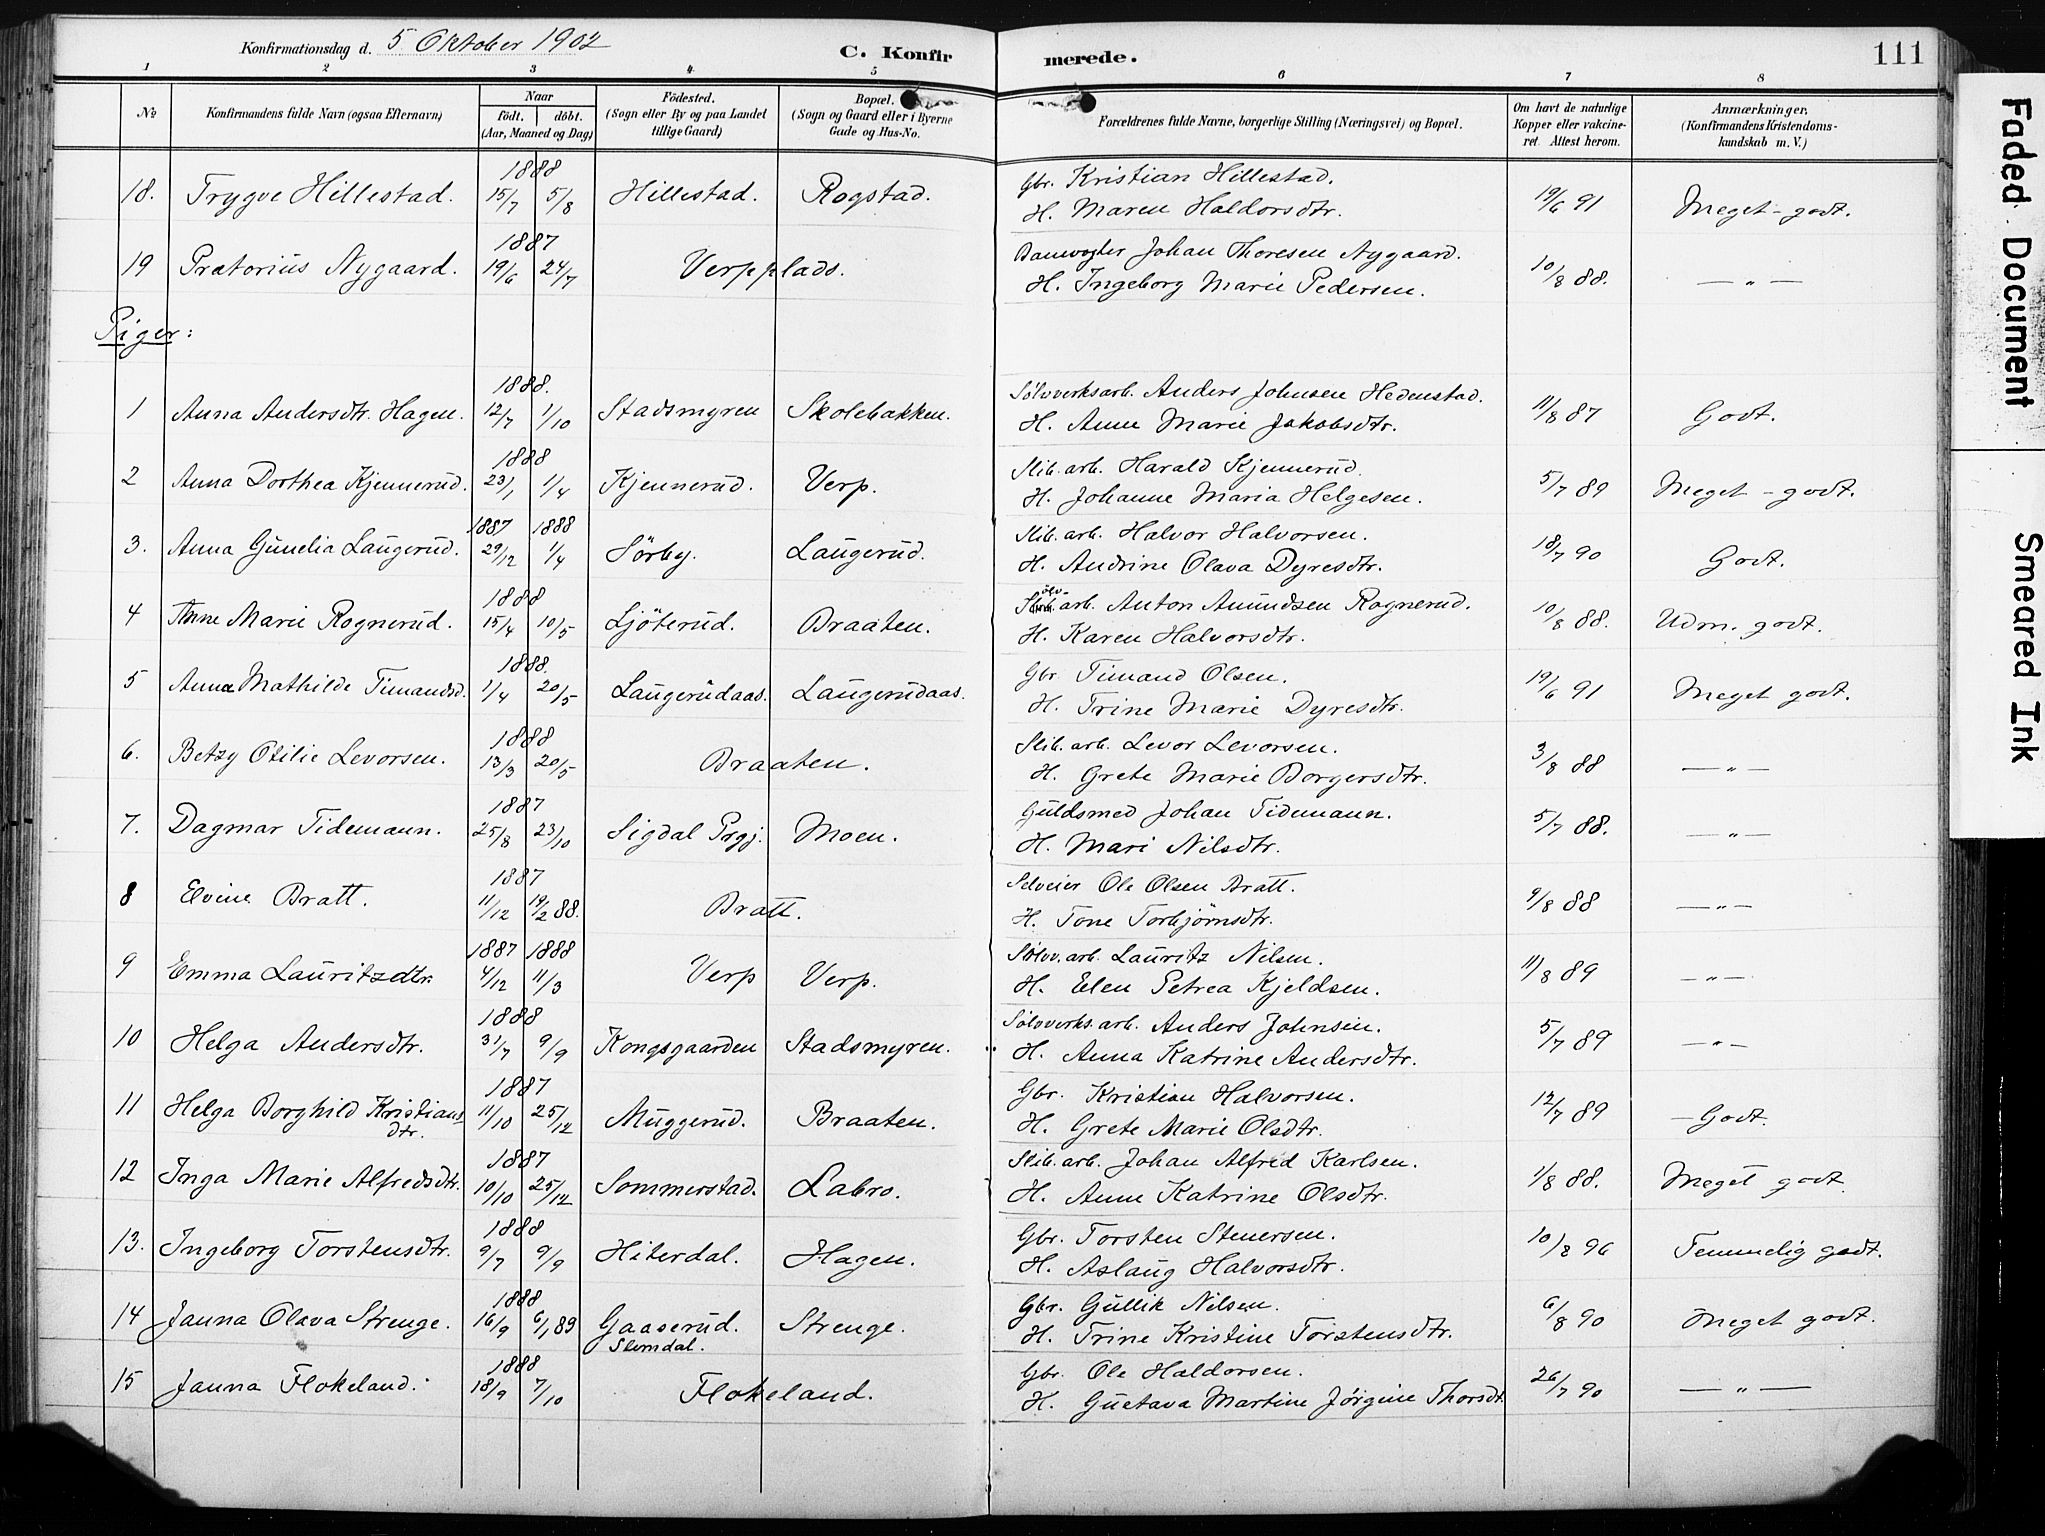 Konfirmationsdag d. 5 Oktober 1902 C. Konfirmerede. 111
1 2 3 4 5 6 7 8
No Konfirmandens fulde Navn (ogsaa Efternavn) Naar födt. döbt. (Aar, Maaned og Dag) Födested. (Sogn eller By og paa Landet tillige Gaard) Bopæl. (Sogn og Gaard eller i Byerne Gade og Hus-No. Forældrenes fulde Navne, borgerlige Stilling (Næringsvei) og Bopæl. Om havt de naturlige Kopper eller vakcineret. Attest herom. Anmærkninger, (Konfirmandens Kristendomskundskab m. V.)
1888
18. Trygve Hillestad. 15/7 5/8 Hillestad. Rogstad. Gbr. Kristian Hillestad. 19/6 91 Meget-godt.
H. Maren Haldorsdtr.
1887
19 Prætorius Nygaard. 19/6 24/7 Verpplads. Banevogter Johan Thoresen Nygaard. 10/8 88. — „ —
H. Ingeborg Marie Pedersen.
Piger:
1888.
1 Anna Andersdtr. Hagen. 12/7 1/10 Stadsmyren Skolebakken. Sølvverksarb. Anders Johnsen Hedenstad. 11/8 87 Godt.
H. Anne Marie Jakobsdtr.
1888
2 Anna Dorthea Kjennerud. 23/1 1/4 Kjennerud. Verp. Slib. arb. Harald Kjennerud. 5/7 89 Meget-godt.
H. Johanne Maria Helgesen.
1887 1888
3. Anna Gunelia Laugerud. 29/12 1/4 Sörby. Laugerud. Slib. arb. Halvor Halvorsen. 18/7 90 Godt.
H. Andrine Olava Dyresdtr.
1888
4 Anne Marie Rognerud. 15/4 10/5 Ljöterud. Braaten. Sølv. arb. Anton Amundsen Rognerud. 10/8 88. Udm. godt.
H. Karen Halvorsdtr.
1888.
5 Anna Mathilde Timandsd. 1/4 20/5 Laugerudaas. Laugerudaas. Gbr Timand Olsen. 19/6 91 Meget godt.
H. Trine Marie Dyresdtr.
1888
6. Betzy Otilie Levorsen. 13/3 20/5 Braaten. Slib. arb. Levor Levorsen. 3/8 88 — „ —
H. Grete Marie Borgersdtr.
1887
7. Dagmar Tidemann. 25/8 23/10 Sigdal Prgj. Moen. Guldsmed Johan Tidemann. 5/7 88. — „ —
H. Mari Nilsdtr.
1887
8 Elvine Bratt. 11/12 19/2 88. Bratt. Selveier Ole Olsen Bratt. 9/8 88 — „ —
H. Tone Torbjørnsdtr.
1887 1888
9 Emma Lauritzdtr. 4/12 11/3 Verp Verp. Sølvv. arb. Lauritz Nilsen. 11/8 89 — „ —
H. Elen Petrea Kjeldsen.
1888
10 Helga Andersdtr. 31/7 9/9 Kongsgaarden Stadsmyren. Sølvverks. arb. Anders Johnsen. 5/7 89 — „ —
H. Anna Katrine Andersdtr.
1887
11 Helga Borghild Kristians- 11/10 25/12 Muggerud. Braaten. Gbr. Kristian Halvorsen. 12/7 89 —Godt.
dtr. H. Grete Marie Olsdtr.
1887
12 Inga Marie Alfredsdtr. 10/10 25/12 Sommerstad. Labro. Slib. arb. Johan Alfred Karlsen. 1/8 88. Meget godt.
H. Anne Katrine Olsdtr.
1888
13. Ingeborg Torstensdtr. 9/7 9/9 Hiterdal. Hagen. Gbr. Torsten Stenersen. 10/8 96 Temmelig godt.
H. Aslaug Halvorsdtr.
1888
14 Janna Olava Strenge. 16/9 6/1 89 Gaaserud. Strenge. Gbr. Gullik Nilsen. 6/8 90 Meget godt.
Slemdal. H. Trine Kristine Torstensdtr.
1888
15 Janna Flokeland. 18/9 7/10 Flokeland. Gbr. Ole Haldorsen. 26/7 90 — „ —
H. Gustava Martine Jörgine Thorsdt.
Faded Document
Smeared Ink